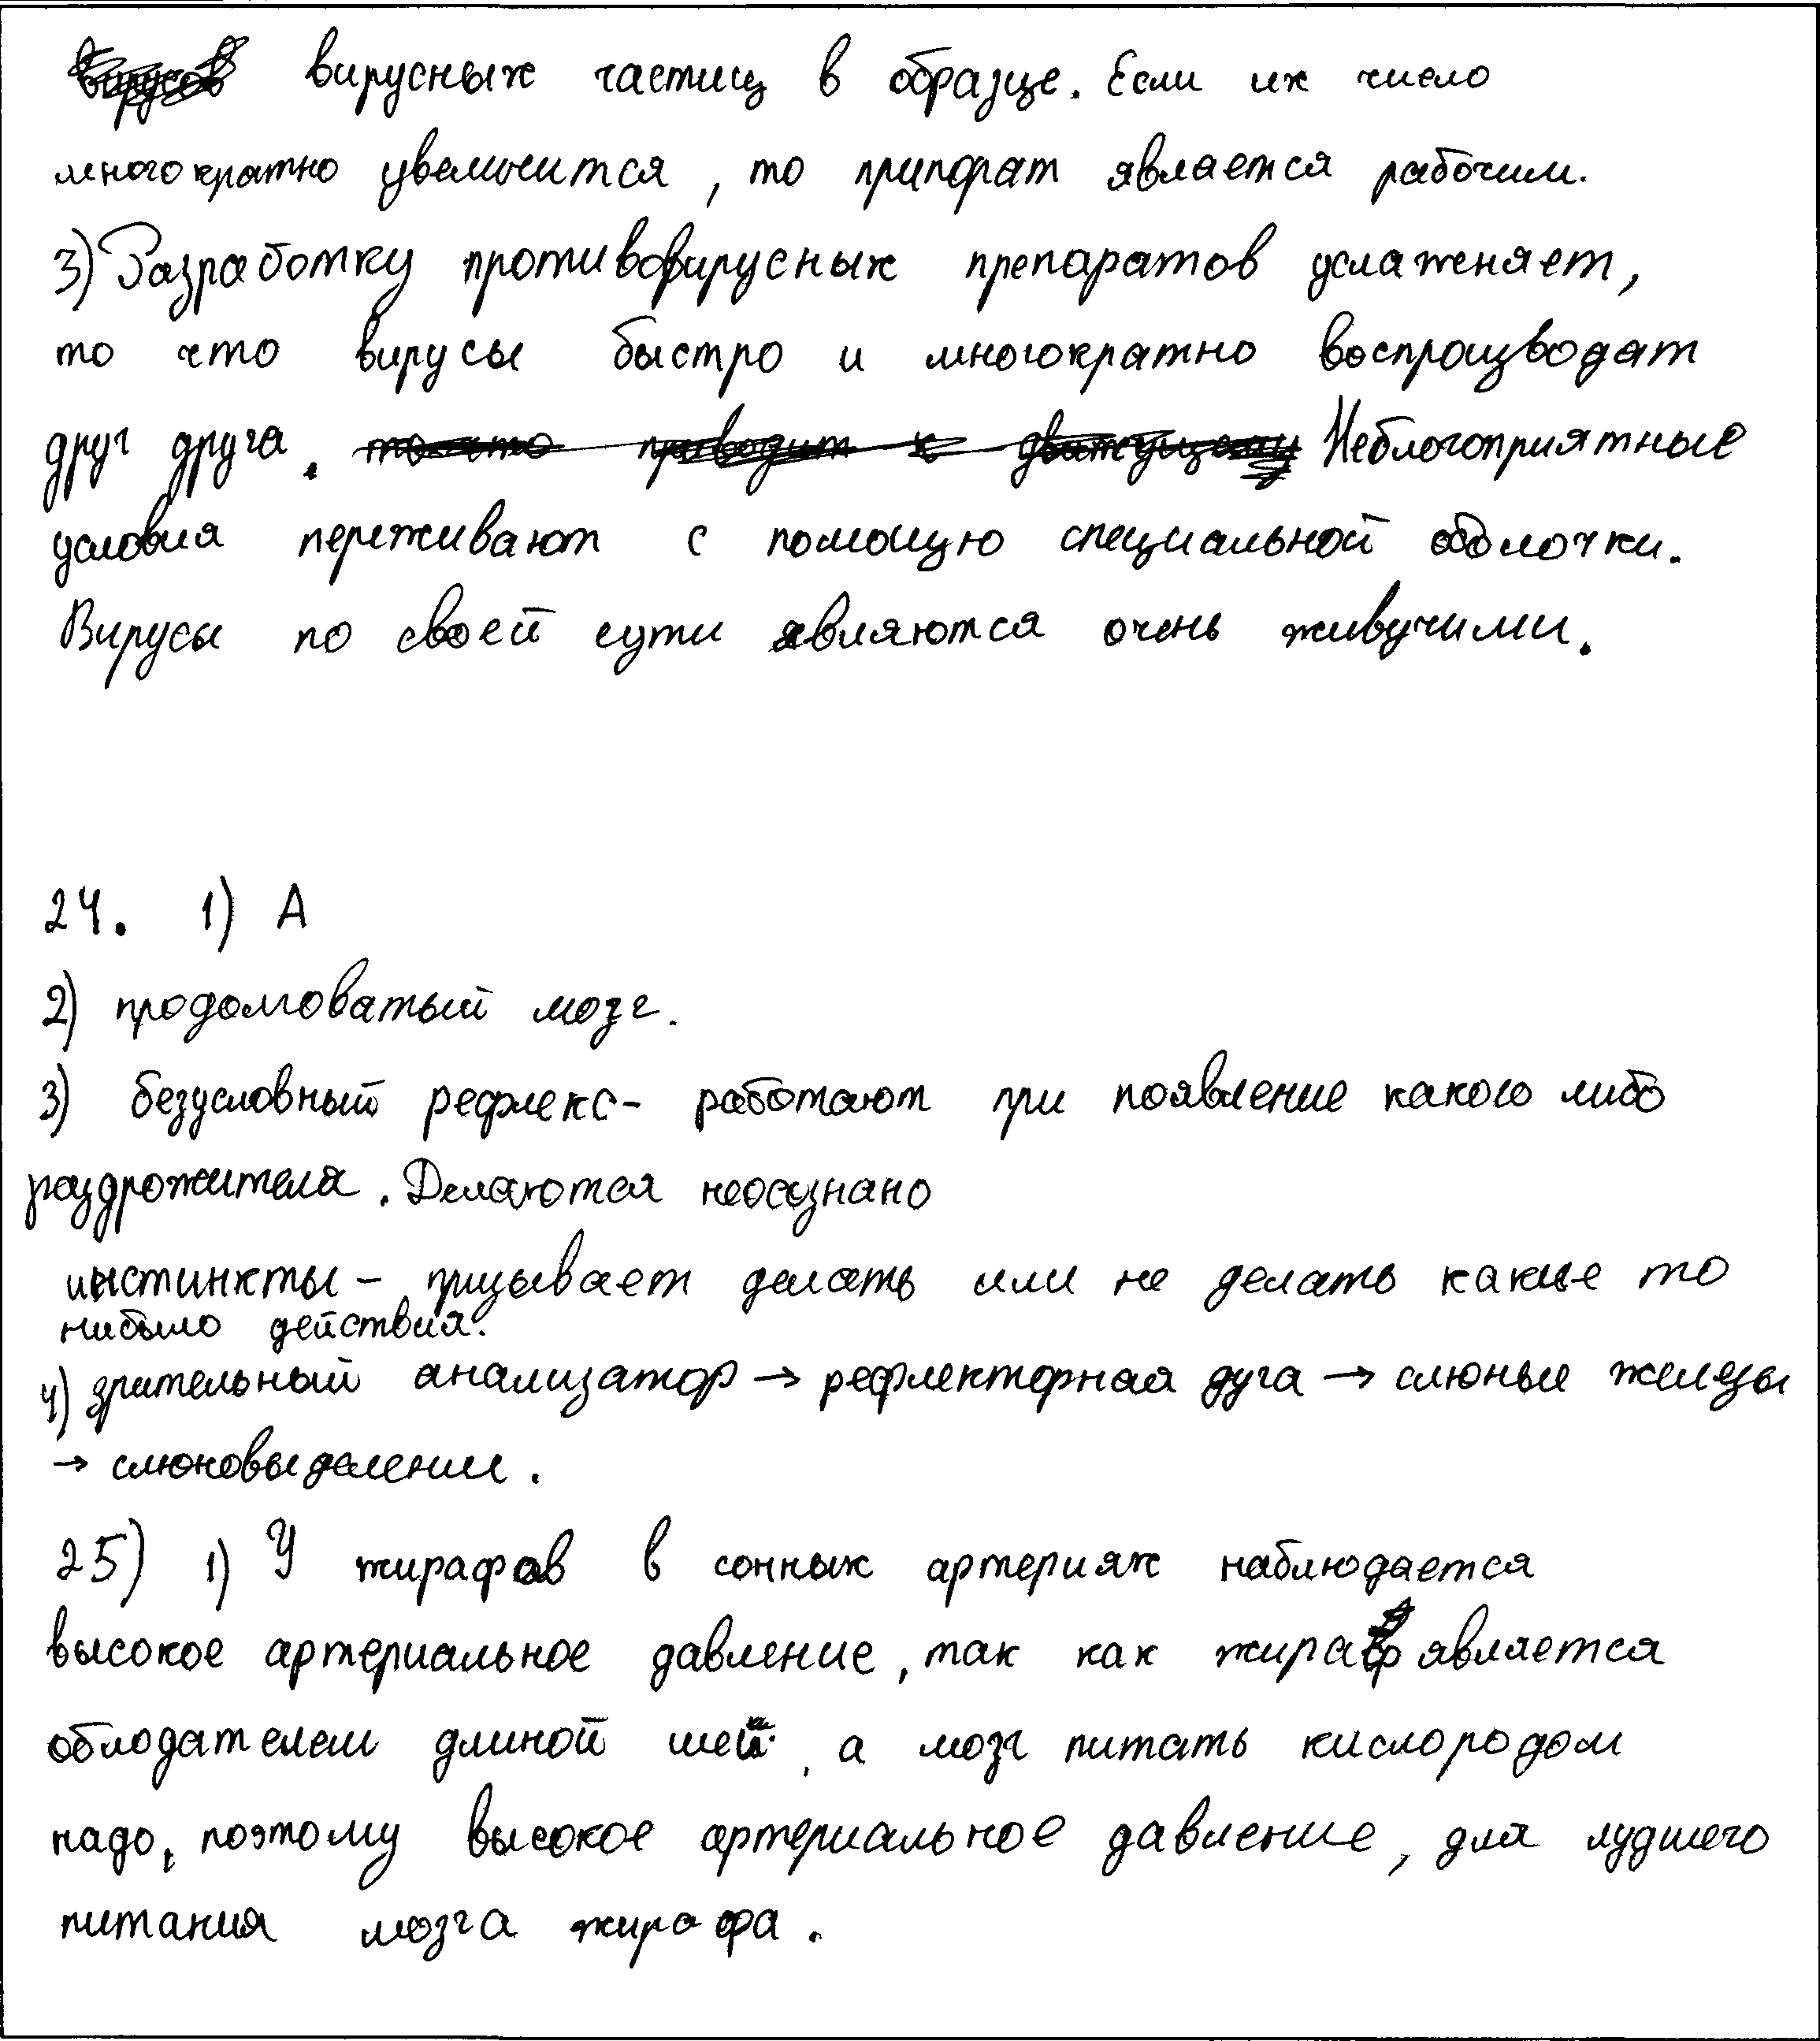 вирусных частиц в образце. Если их число
многократно увеличится, то припорат является рабочим.
3) Разработку противовирусных препаратов услаженяет,
то что вирусы быстро и многократно воспроизводят
друг друга. Неблогоприятные
условия переживают с помощью специальной оболочки.
Вирусы по своей сути являются очень живучими.
24. 1) А
2) продолговатый мозг.
3) безусловный рефлекс - работают при появление какого либо
раздрожителя. Делаются неосознано
инстинкты - призывает делать или не делать какие то
нибыло действия.
4) зрительный анализатор → рефлекторная дуга → слюные железы
→ слюновыделении.
25) 1) У жирафов в сонных артериях наблюдается
высокое артериальное давление, так как жираф является
облодателем длиной шеи, а мозг питать кислородом
надо, поэтому высокое артериальное давление, для лудшего
питания мозга жирафа.